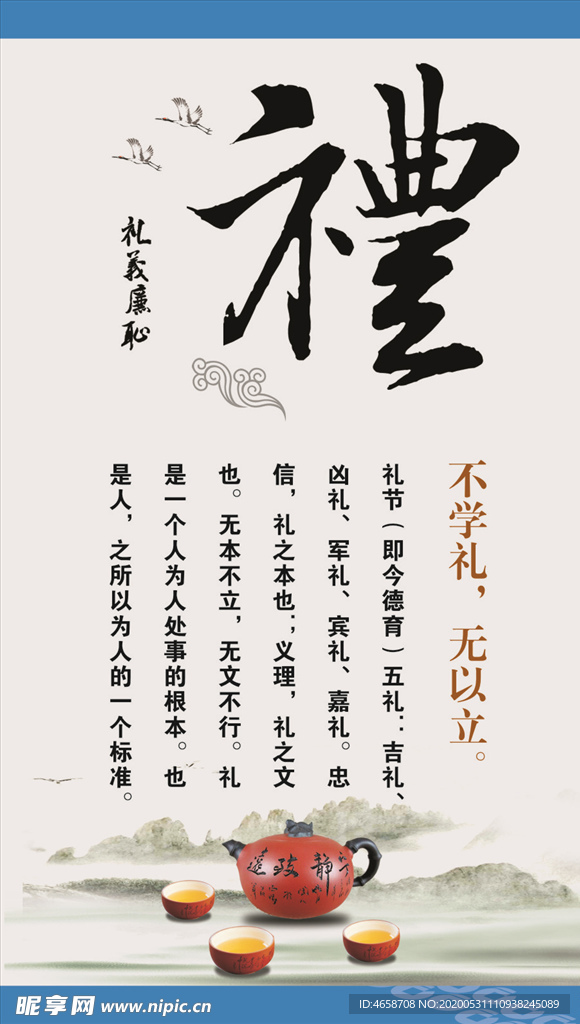 禮
礼義廉恥
不学礼，无以立。
礼节（即今德育）五礼：吉礼、
凶礼、军礼、宾礼、嘉礼。忠
信，礼之本也；义理，礼之文
也。无本不立，无文不行。礼
是一个人为人处事的根本。也
是人，之所以为人的一个标准。
昵享网 www.nipic.cn
ID:4658708 NO:20200531110938245089